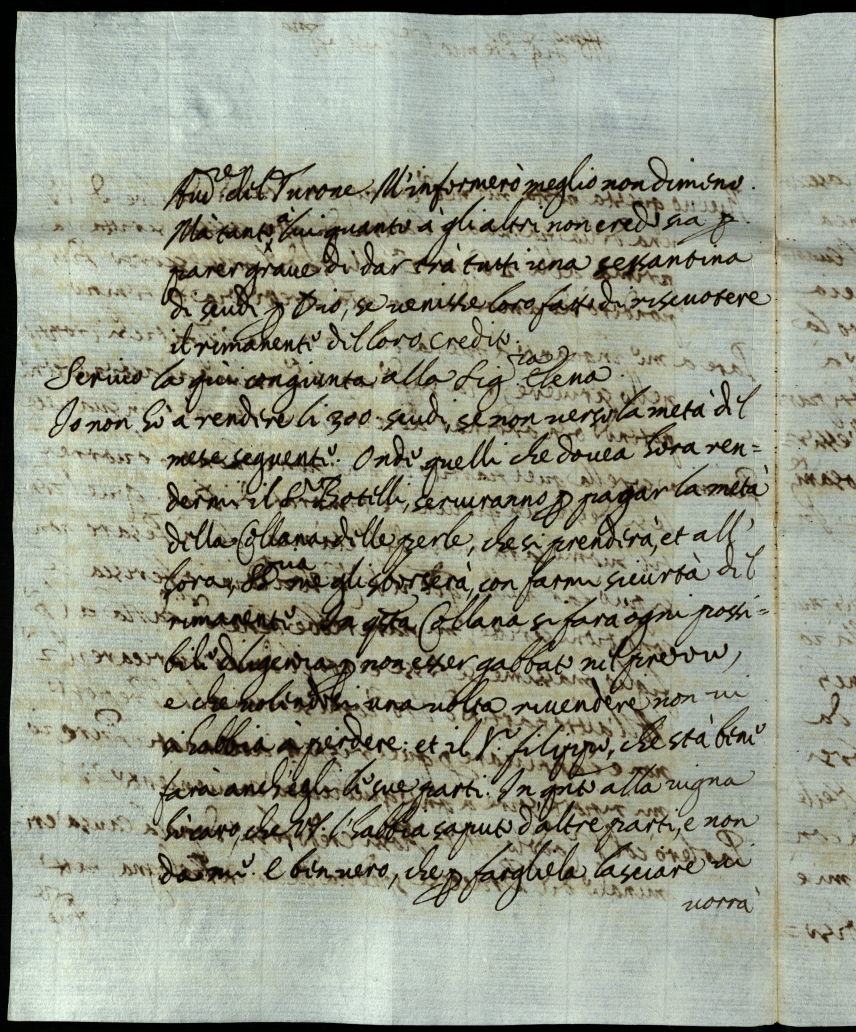 Aud.re del Turone. M'informerò meglio nondimeno.
Mà tanto à lui quanto à gli altri non credo sia p
parer grave di dar trà tutti una sessantina
di scudi p Dio, se venisse loro fatto di riscuotere
il rimanente del loro credito.
Scrivo la qui congiunta alla Sig.ra Elena.
Io non hò a rendere li 300 scudi, se non verso la metà del
mese seguente. Onde quelli che dovea hora ren=
dermi il S.r Botelli, serviranno p pagar la metà
della Collana delle perle, che si prenderà, et all'
hora, me gli sborserà, con farmi sicurtà del
rimanente. Da qsta Collana si farà ogni possi=
bile diligenza p non esser gabbato nel prezzo,
e che volendosi una volta rivendere non vi
s'habbia à perdere: et il S.r Filippo, che stà bene
farà anch'egli le sue parti. In qnto alla vigna
hò caro, che VS. l'habbia saputo d'altre parti, e non
da me. E ben vero, che p fargliela lasciare vi
vorrà